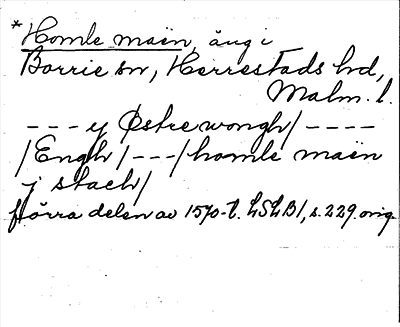 *Homle maën, äng i
Borrie sn, Herrestads hd,
Malm. l.
--- y Østre wongh/ ----
/Engh/ --- /homle maën
j stach/
förra delen av 1570-t. LSLB1, s. 229. orig.